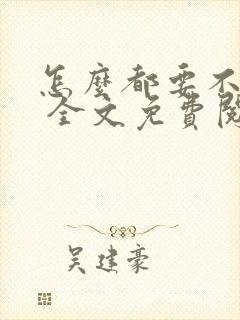 怎麼都要不
全文免費閱
吳建豪